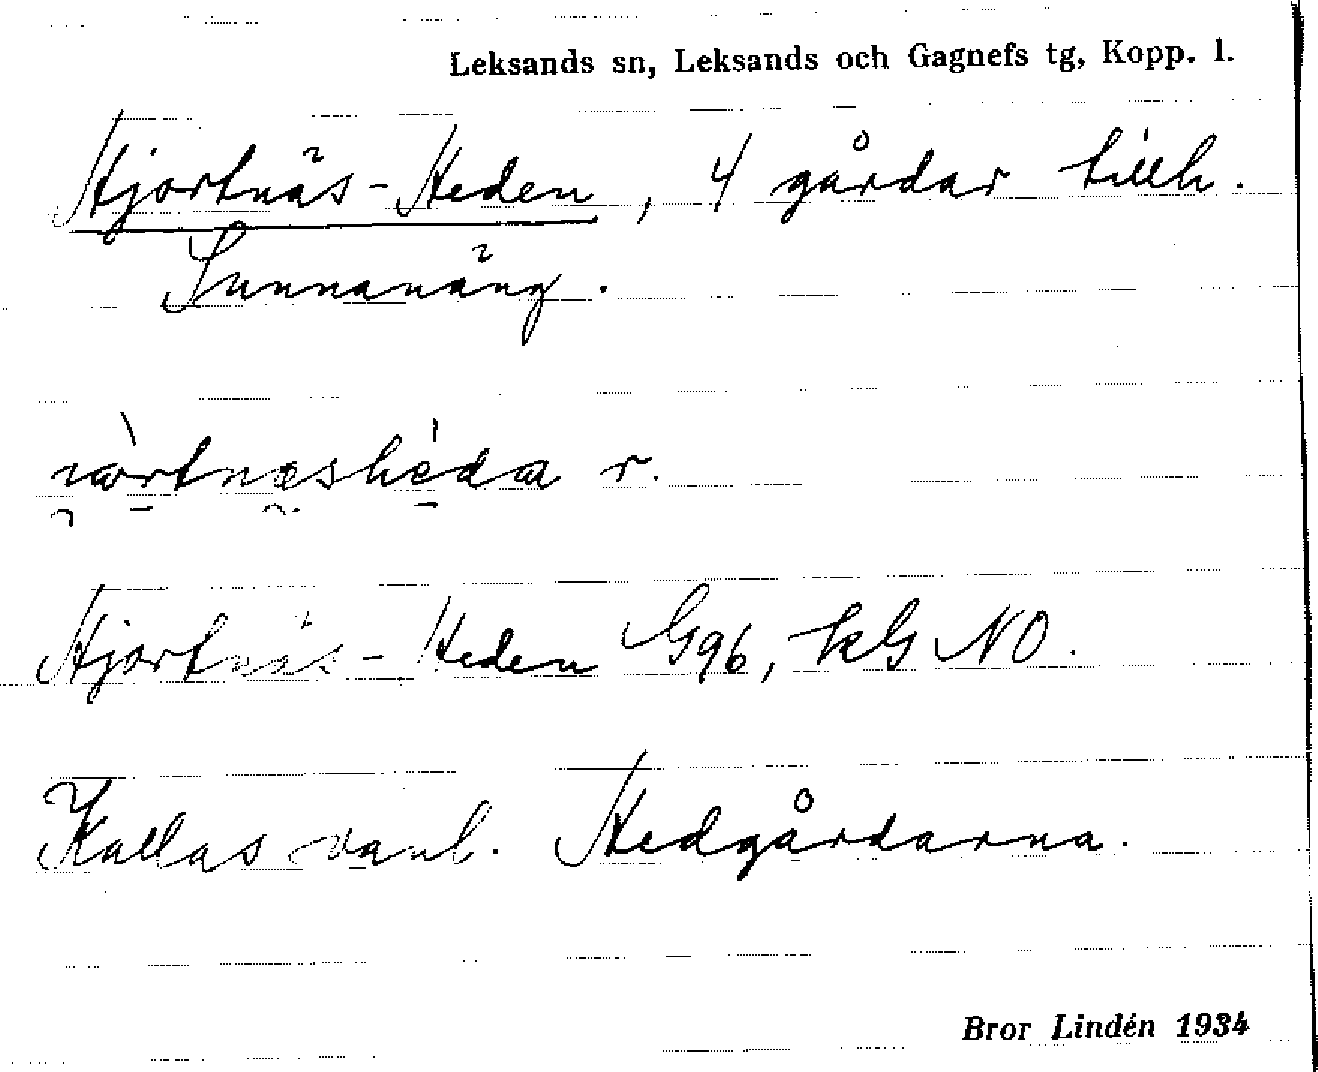 Leksands sn, Leksands och Gagnefs tg, Kopp. l.
Hjortnäs-Heden, 4 gårdar tillh.
Sunnanäng.
r.
Hjortnäs-Heden G96, kG NO.
Kallas vanl. Hedgårdarna.
Bror Lindén 1934